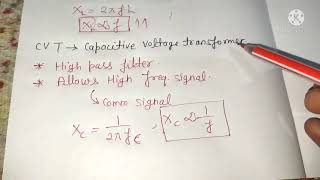 X_L = 2πfL
X_L ∝ f ↑↑
CVT → Capacitive Voltage transformer
* High pass filter
* Allows High freq. signal.
↳ Comm signal
X_C = 1/2πfC , X_C ∝ 1/f